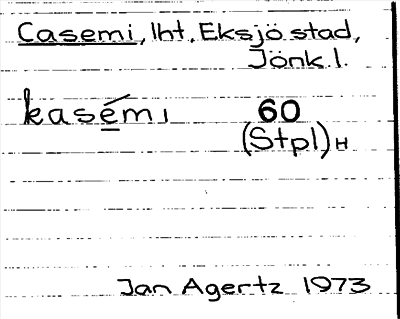 Casemi, lht, Eksjö stad,
Jönk. l.
kasémi 60
(Stpl) H
Jan Agertz 1973